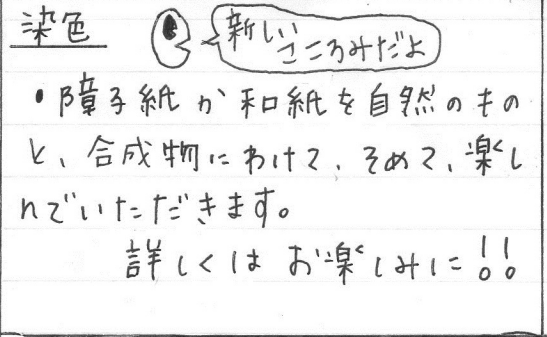 染色
新しい
こころみだよ
・障子紙か和紙を自然のもの
と、合成物にわけて、そめて、楽し
んでいただきます。
詳しくはお楽しみに!!